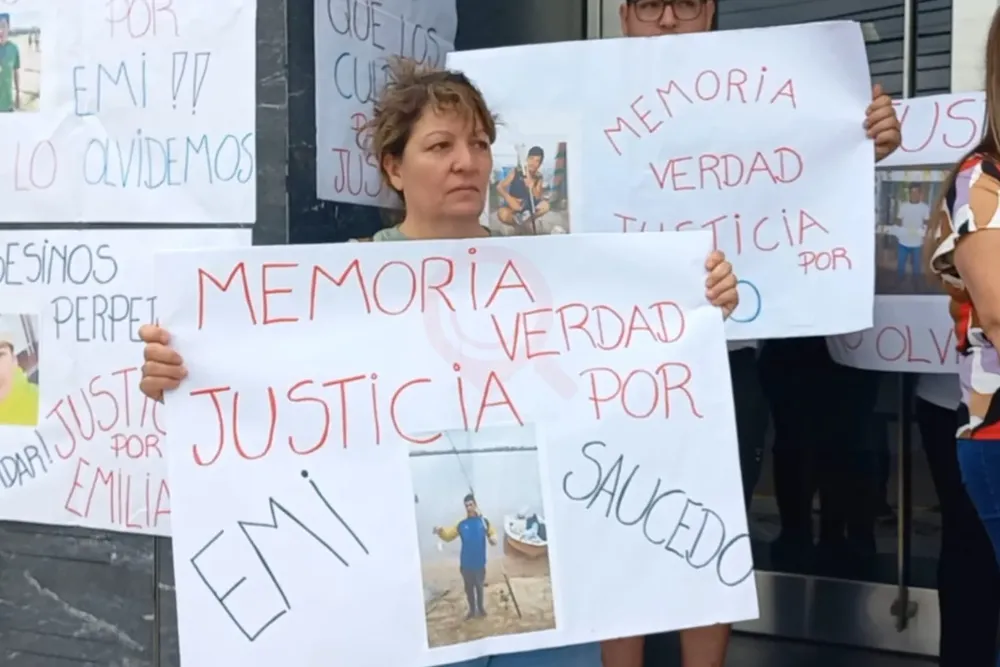 POR
EMI !!
LO OLVIDEMOS
QUE LOS
JUS
MEMORIA
VERDAD
JUSTICIA
POR
JUS
OLV
PERPET
JUSTIC
POR
EMILIA
DAR!
MEMORIA
VERDAD
JUSTICIA POR
EMI SAUCEDO